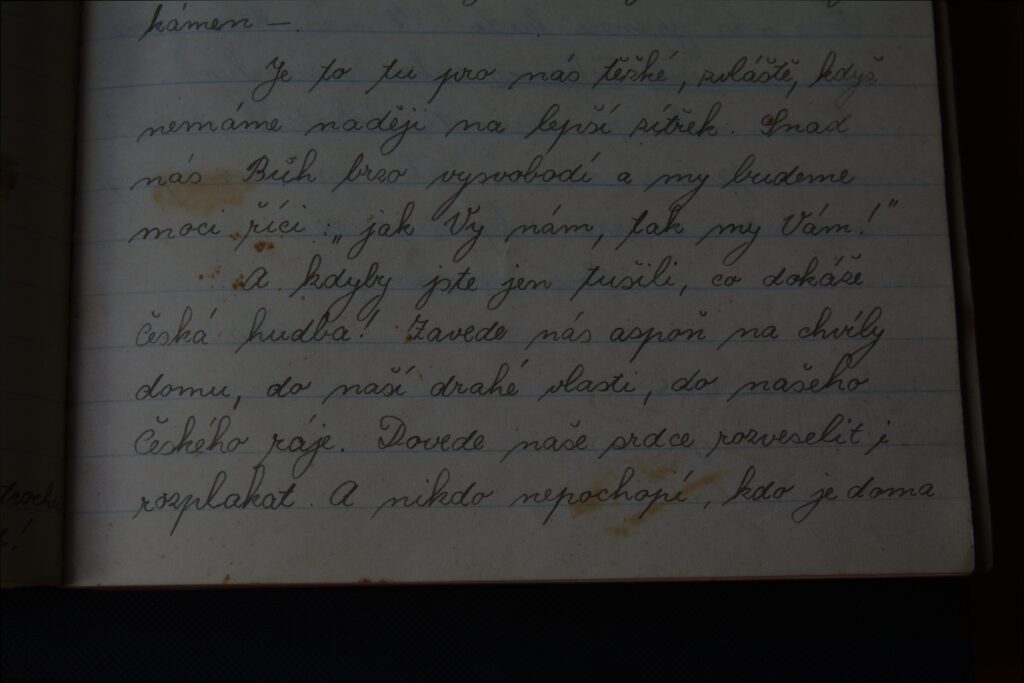 kámen —
Je to tu pro nás těžké, zvláště, když
nemáme naději na lepší zítřek. Snad
nás Bůh brzo vysvobodí a my budeme
moci říci: „jak Vy nám, tak my Vám!"
A kdyby jste jen tušili, co dokáže
česká hudba! Zavede nás aspoň na chvíly
domu, do naší drahé vlasti, do našeho
Českého ráje. Dovede naše srdce rozveselit i
rozplakat. A nikdo nepochopí, kdo je doma